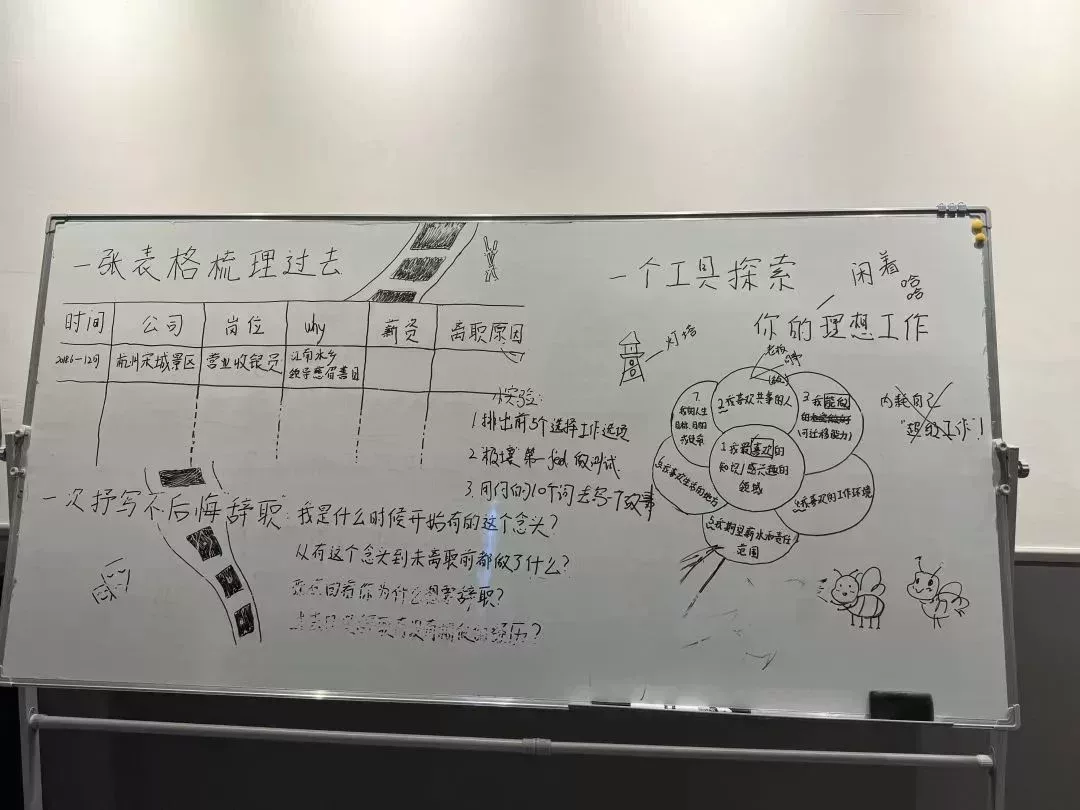 一张表格梳理过去
时间 公司 岗位 why 薪资 离职原因
杭州宋城景区 营业收银员 江南水乡
领导慈眉善目
实验:
1.排出前5个选择工作选项
2.极壤"第一 的测试
3.用付的10个问去写一个故事
一次抒写不后悔"辞职":我是什么时候开始有的这个念头?
从有这个念头到未离职前都做了什么?
现在回看你为什么想要辞职?
一个工具探索
闲着
哈哈
你的理想工作
灯塔
老板
2.我喜欢共事的人
7.
我的人生
目标、目的
或使命
3.我能做
(可迁移能力)
1.我最喜欢的
知识/感兴趣的
领域
6.我喜欢生活的地方
4.我喜欢的工作环境
5.我期望薪水和责任
范围
内耗自己
"超级工作"!